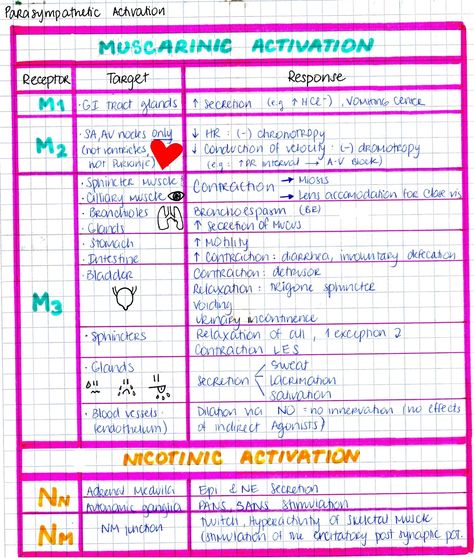 Parasympathetic Activation
MUSCARINIC ACTIVATION
Receptor Target Response
M1 · GI tract glands ↑ secretion (e.g ↑ HCl⁻), vomiting center
M2 · SA, AV nodes only ↓ HR : (-) chronotropy
(not ventricles, ↓ Conduction of velocity : (-) dromotropy
not Purkinje) (e.g : ↑ PR interval → A-V block)
M3
· Sphincter muscle Contraction → Miosis
· Ciliary muscle → Lens accomodation for clear vis
· Bronchioles Bronchospasm (BR)
· Glands ↑ secretion of mucus
· Stomach ↑ Motility
· Intestine ↑ Contraction : diarrhea, involuntary defecation
· Bladder Contraction : detrusor
Relaxation : trigone sphincter
Voiding
Urinary incontinence
· Sphincters Relaxation of all, 1 exception 2
Contraction LES
· Glands sweat
secretion lacrimation
salivation
· Blood vessels Dilation via NO = no innervation (no effects
(endothelium) of indirect Agonists)
NICOTINIC ACTIVATION
NN Adrenal Medulla Epi & NE secretion
Autonomic ganglia PANS, SANS stimulation
NM NM junction Twitch, Hyperactivity of skeletal muscle
(stimulation of the excitatory post synaptic pot.